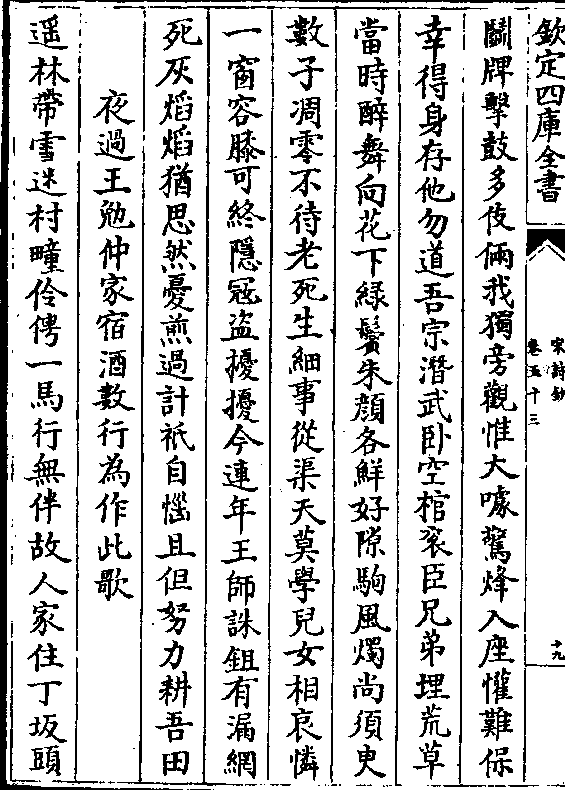 欽定四庫全書
宋詩鈔
卷五十三
十九
鬭牌擊鼓多伎倆我獨旁觀惟大噱驚烽入座懽難保
幸得身存他勿道吾宗潛武卧空棺衮臣兄弟埋荒草
當時醉舞向花下緑鬢朱顔各鮮好隙駒風燭尚須臾
數子凋零不待老死生細事從渠天莫學兒女相哀憐
一窗容膝可終隱冦盗擾擾今連年王師誅鉏有漏網
死灰焰焰猶思然憂煎過計祇自惱且但努力耕吾田
夜過王勉仲家宿酒數行為作此歌
遥林帶雪迷村疃伶俜一馬行無伴故人家住丁坂頭